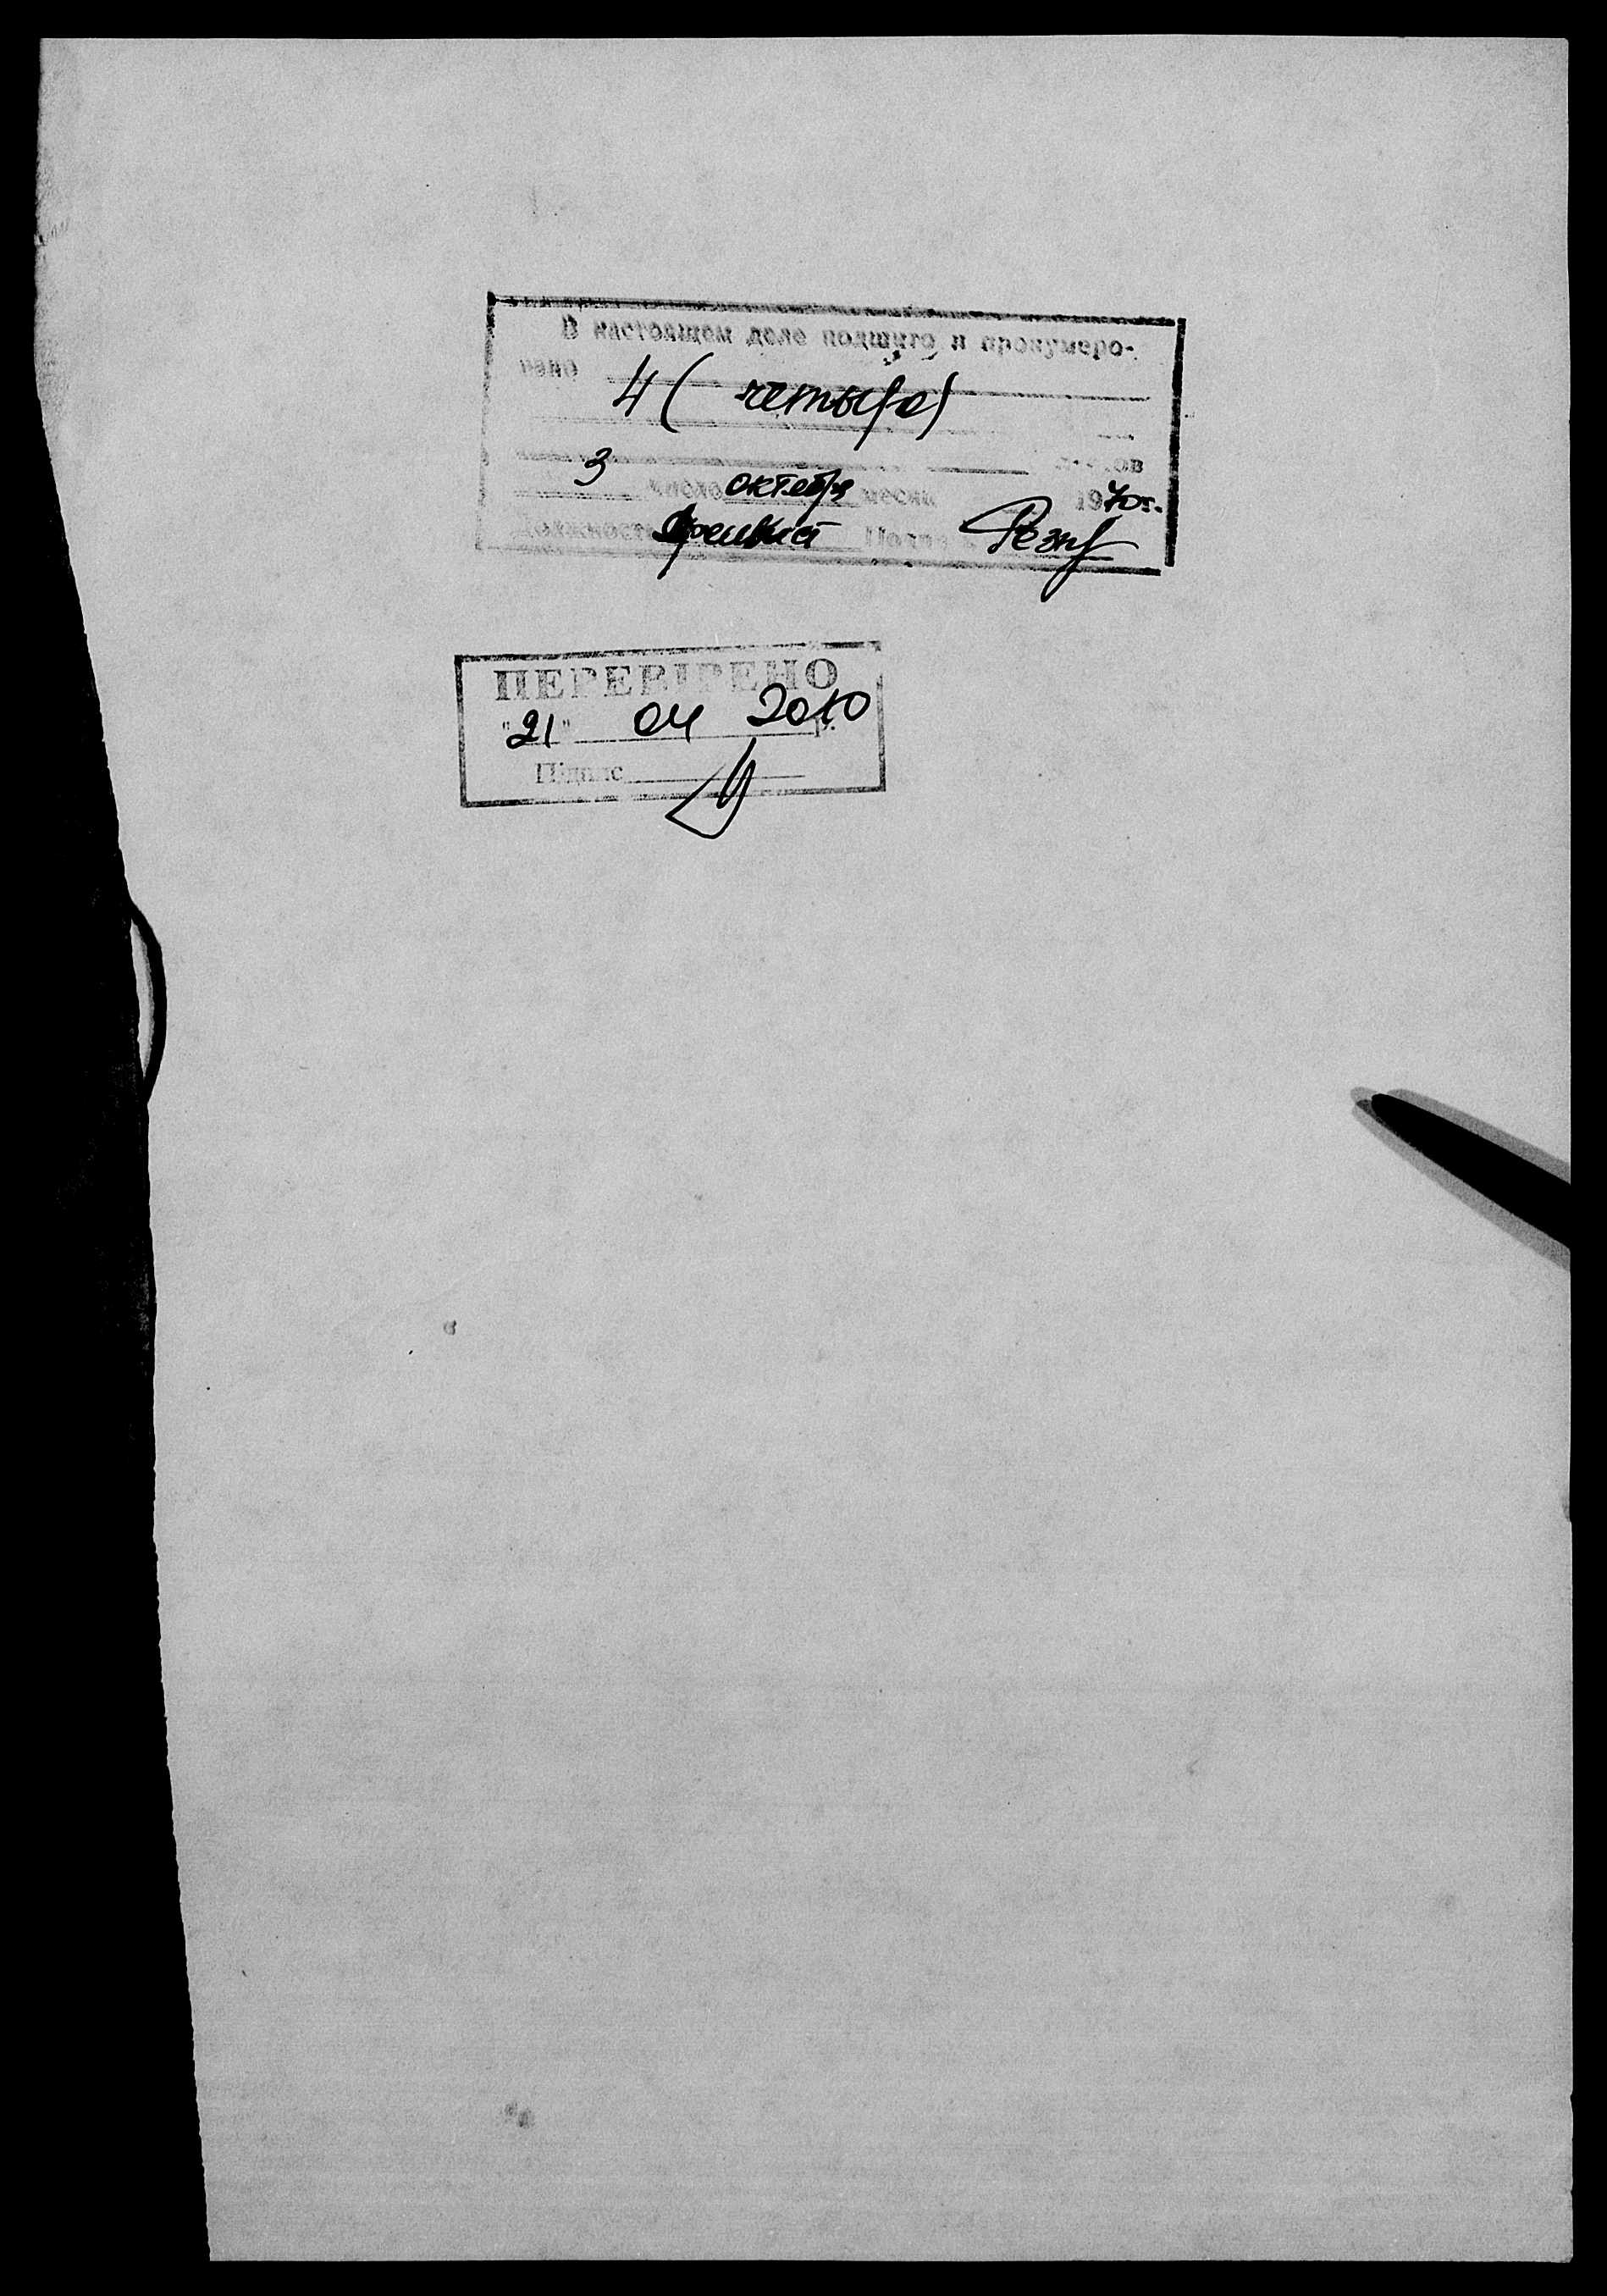 В настоящем деле подшито и пронумеро-
вано
4 (четыре)
листов
3 число октября месяц 1970 г.
Должность Архивист Подпись
ПЕРЕВІРЕНО
"21" 04 2010 р.
Підпис